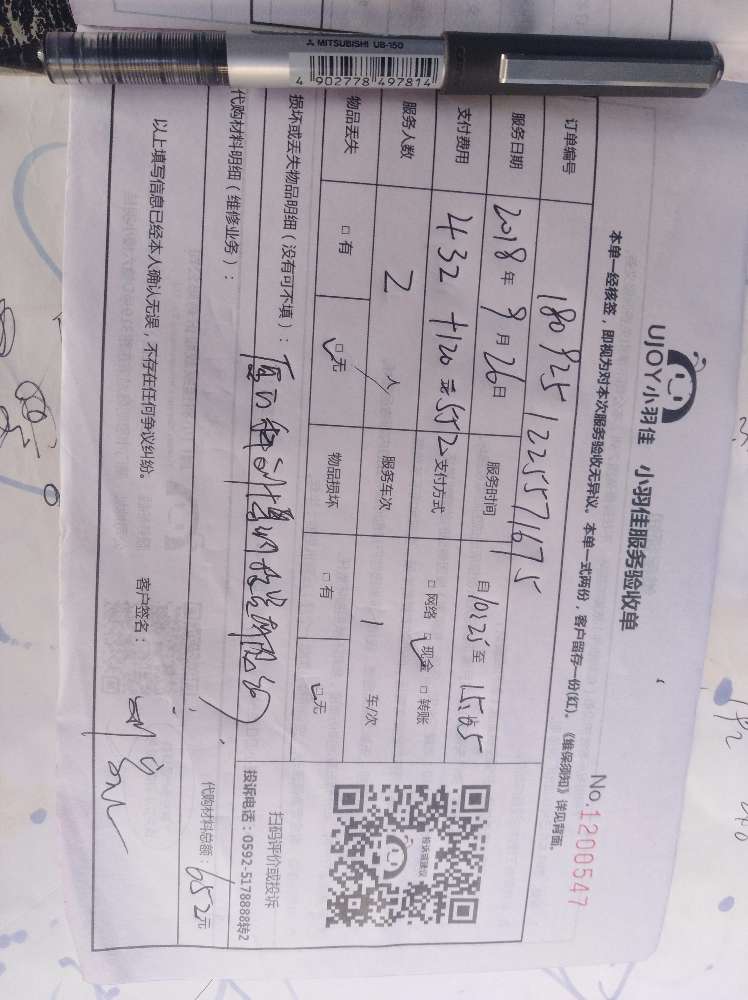 MITSUBISHI UB-150
4 902778 497814
UJOY小羽佳 小羽佳服务验收单
No.1200547
本单一经核签，即视为对本次服务验收无异议。本单一式两份，客户留存一份(红)。《维保须知》详见背面。
订单编号 1809251225571675
服务日期 2018年9月26日 服务时间 自10:25至15:05
支付费用 432+120=552 支付方式 □网络 ☑现金 □转账
服务人数 2人 服务车次 1 车/次
物品丢失 □有 ☑无 物品损坏 □有 ☑无
投诉或建议
扫码评价或投诉
投诉电话：0592-5178888转2
损坏或丢失物品明细（没有可不填）：
代购材料明细（维修业务）： 代购材料总额：652元
以上填写信息已经本人确认无误，不存在任何争议纠纷。 客户签名：